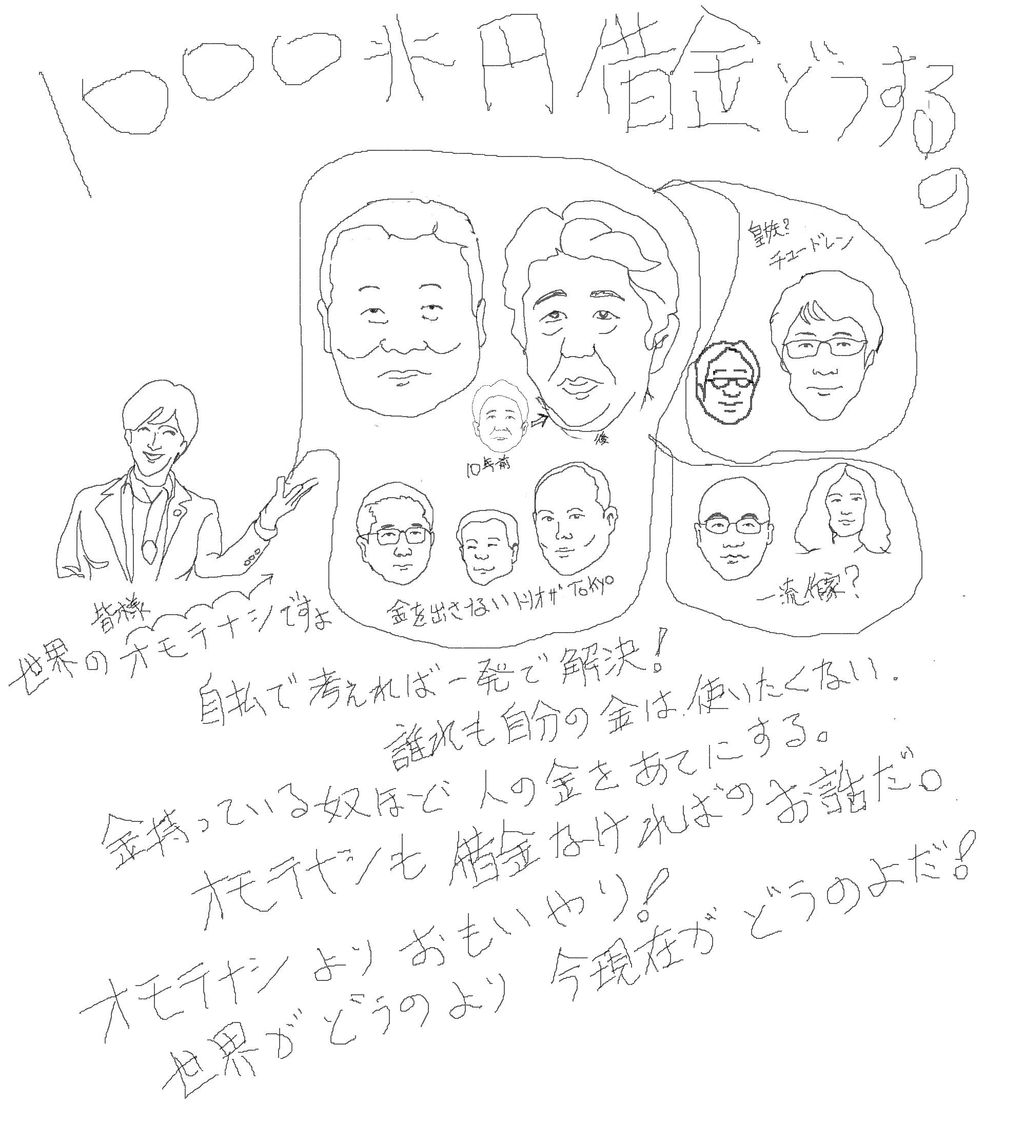 1000兆円借金どうする?
皇族?
チュードレン
10年前
後
金を出さないトリオザTOKYO
一流作家?
皆様
世界のオモテナシですよ
自払で考えれば一発で解決!
誰れも自分の金は使いたくない.
金持っている奴ほど人の金をあてにする。
オモテナシも借金なければのお話だ。
オモテナシよりおもいやり!
世界がどうのより今現在がどうのよだ!